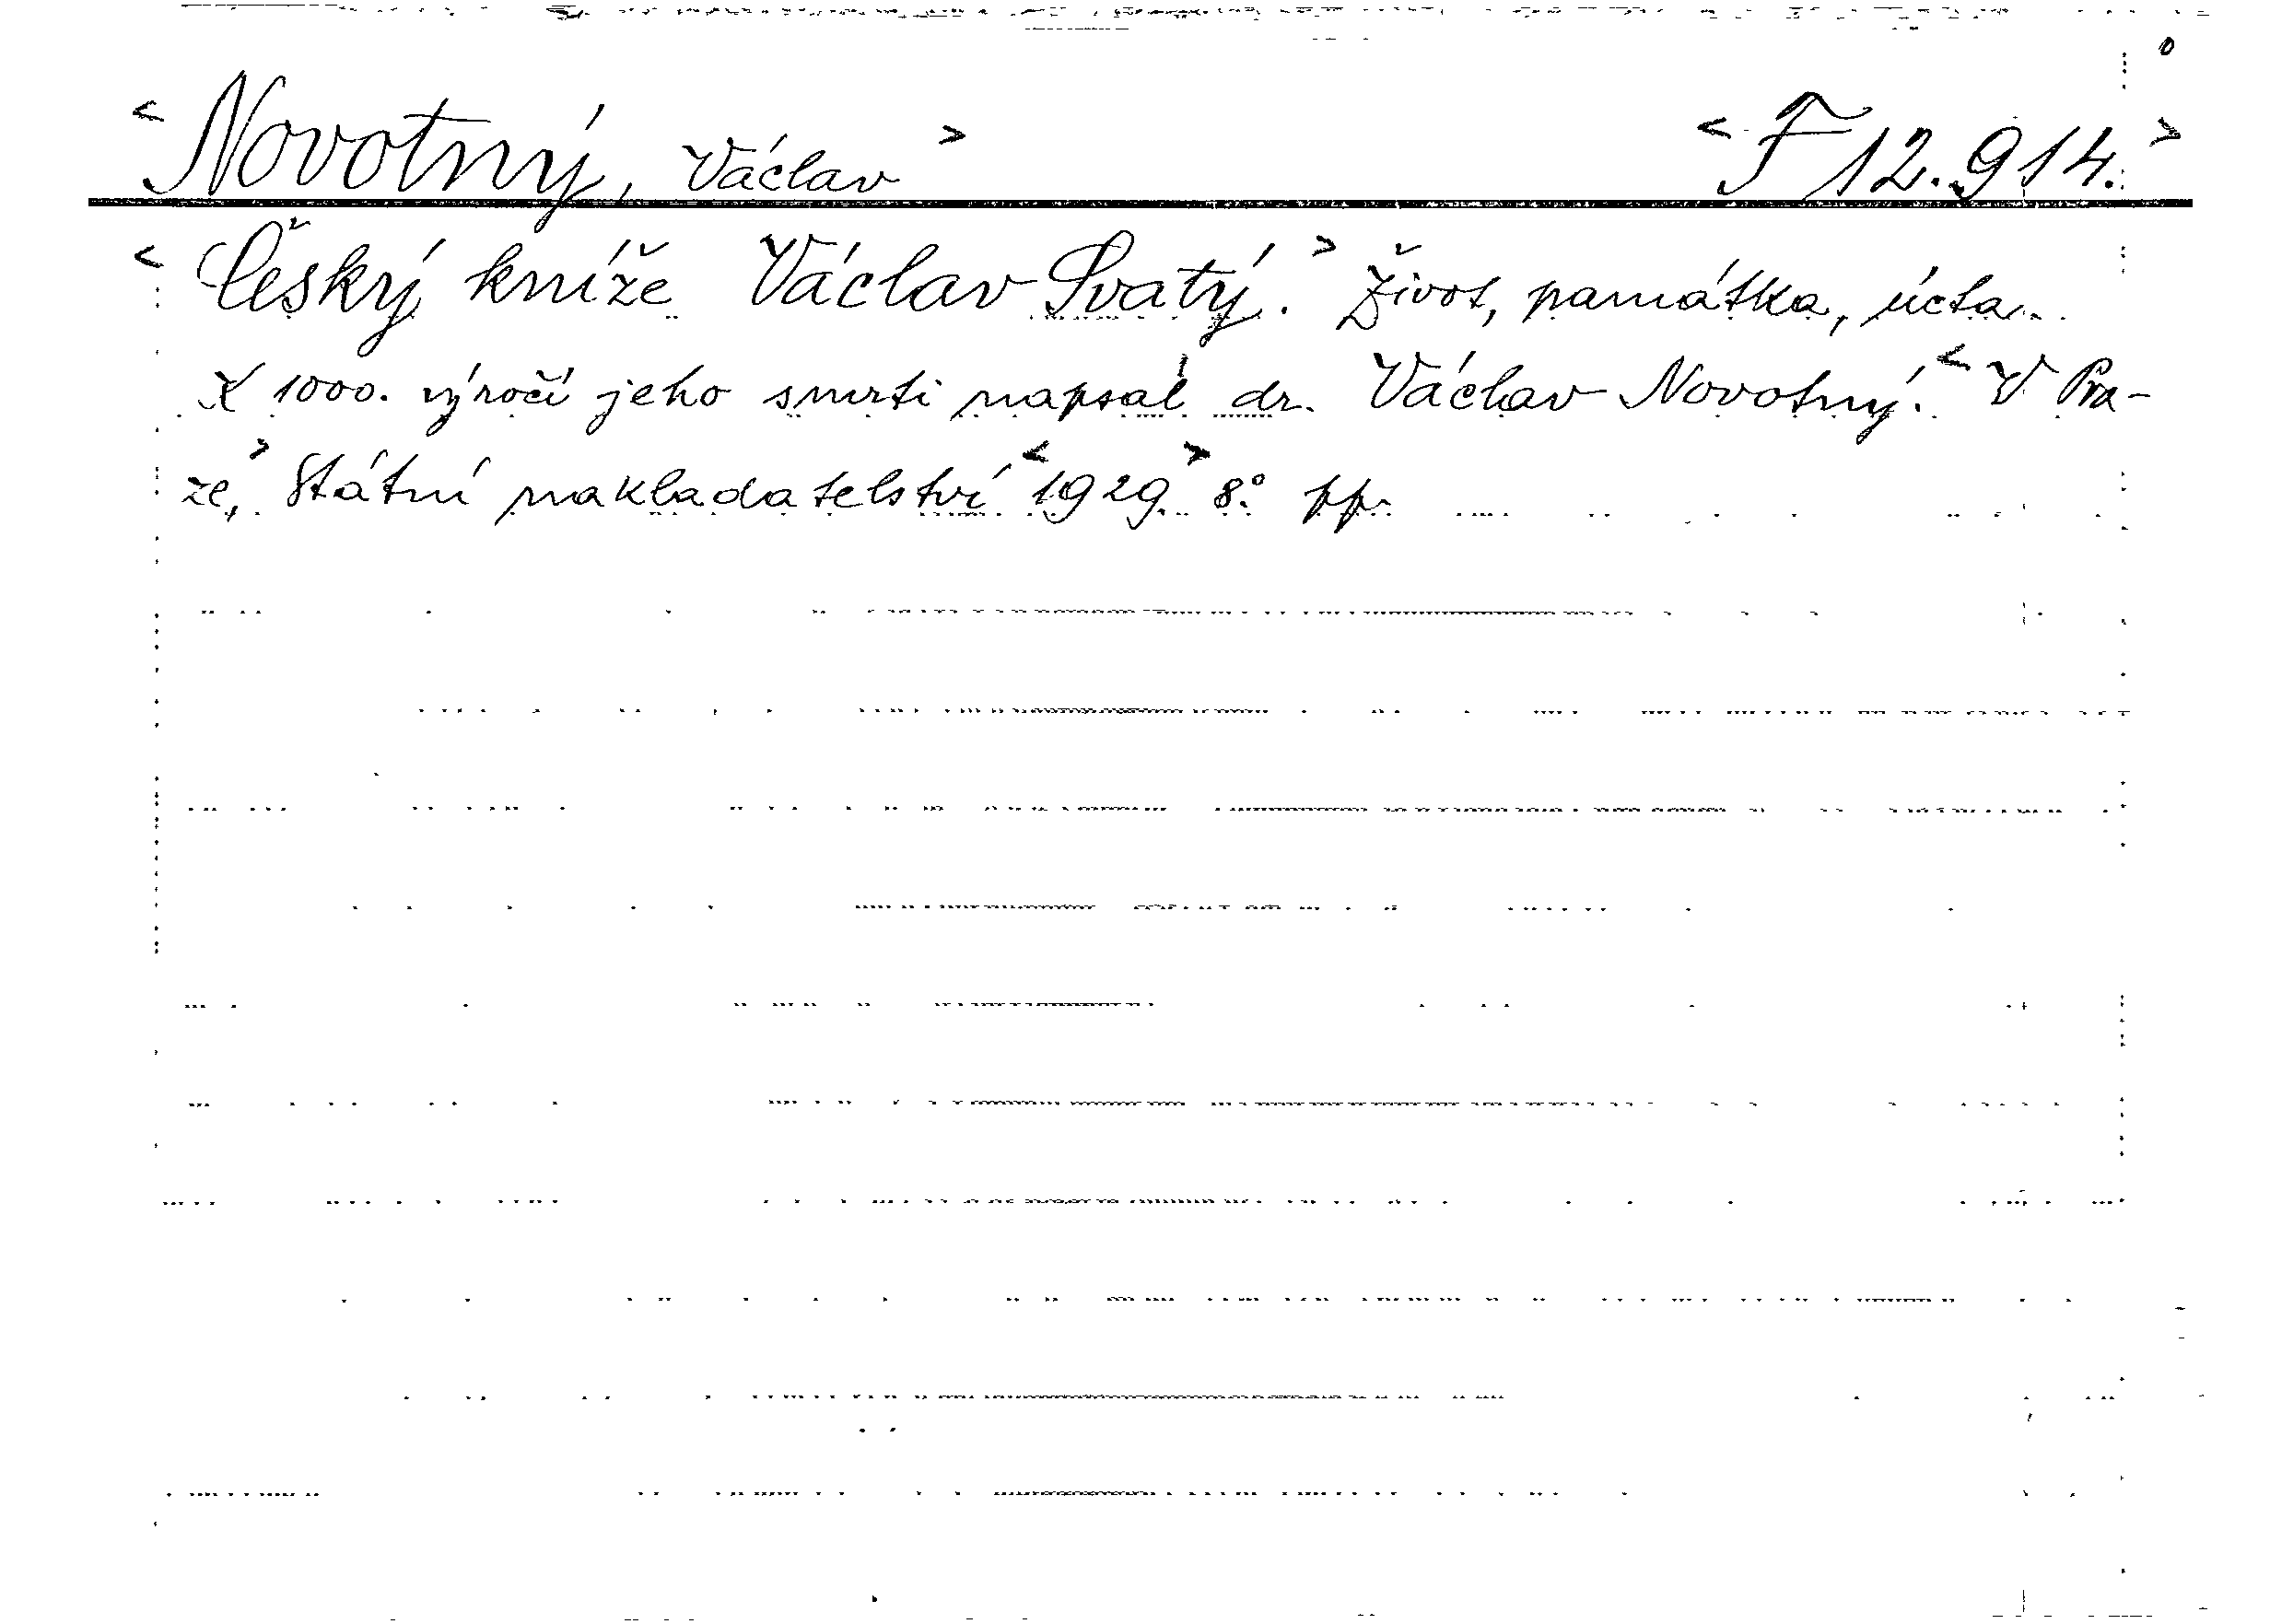 <Novotný, Václav> <F 12.914.>
<Český kníže Václav Svatý.> Život, památka, úcta.
K 1000. výročí jeho smrti napsal dr. Václav Novotný. <V Pra-
ze,> Státní nakladatelství <1929.> 8.° pp.